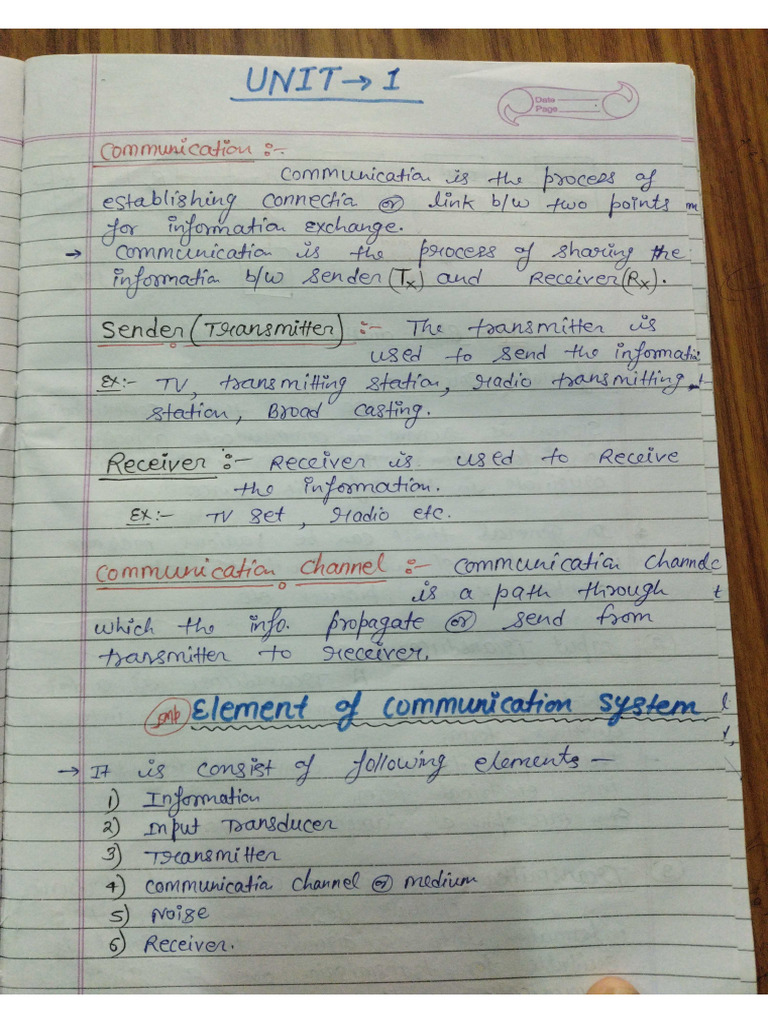 UNIT → 1
Date
Page
Communication :-
Communication is the process of
establishing connectia or link b/w two points
for information exchange.
→ Communication is the process of sharing the
informatia b/w sender (Tx) and Receiver (Rx).
Sender (Transmitter) :- The transmitter is
used to send the informati
Ex:- TV, transmitting station, radio transmitting
station, Broad casting.
Receiver :- Receiver is used to Receive
the information.
Ex:- TV set, radio etc.
Communication Channel :- Communication Channel
is a path through
which the info. propagate or send from
transmitter to receiver.
Imp Element of communication system
→ It is consist of following elements -
1) Information
2) Input Transducer
3) Transmitter
4) Communicatia channel or medium
5) Noise
6) Receiver.